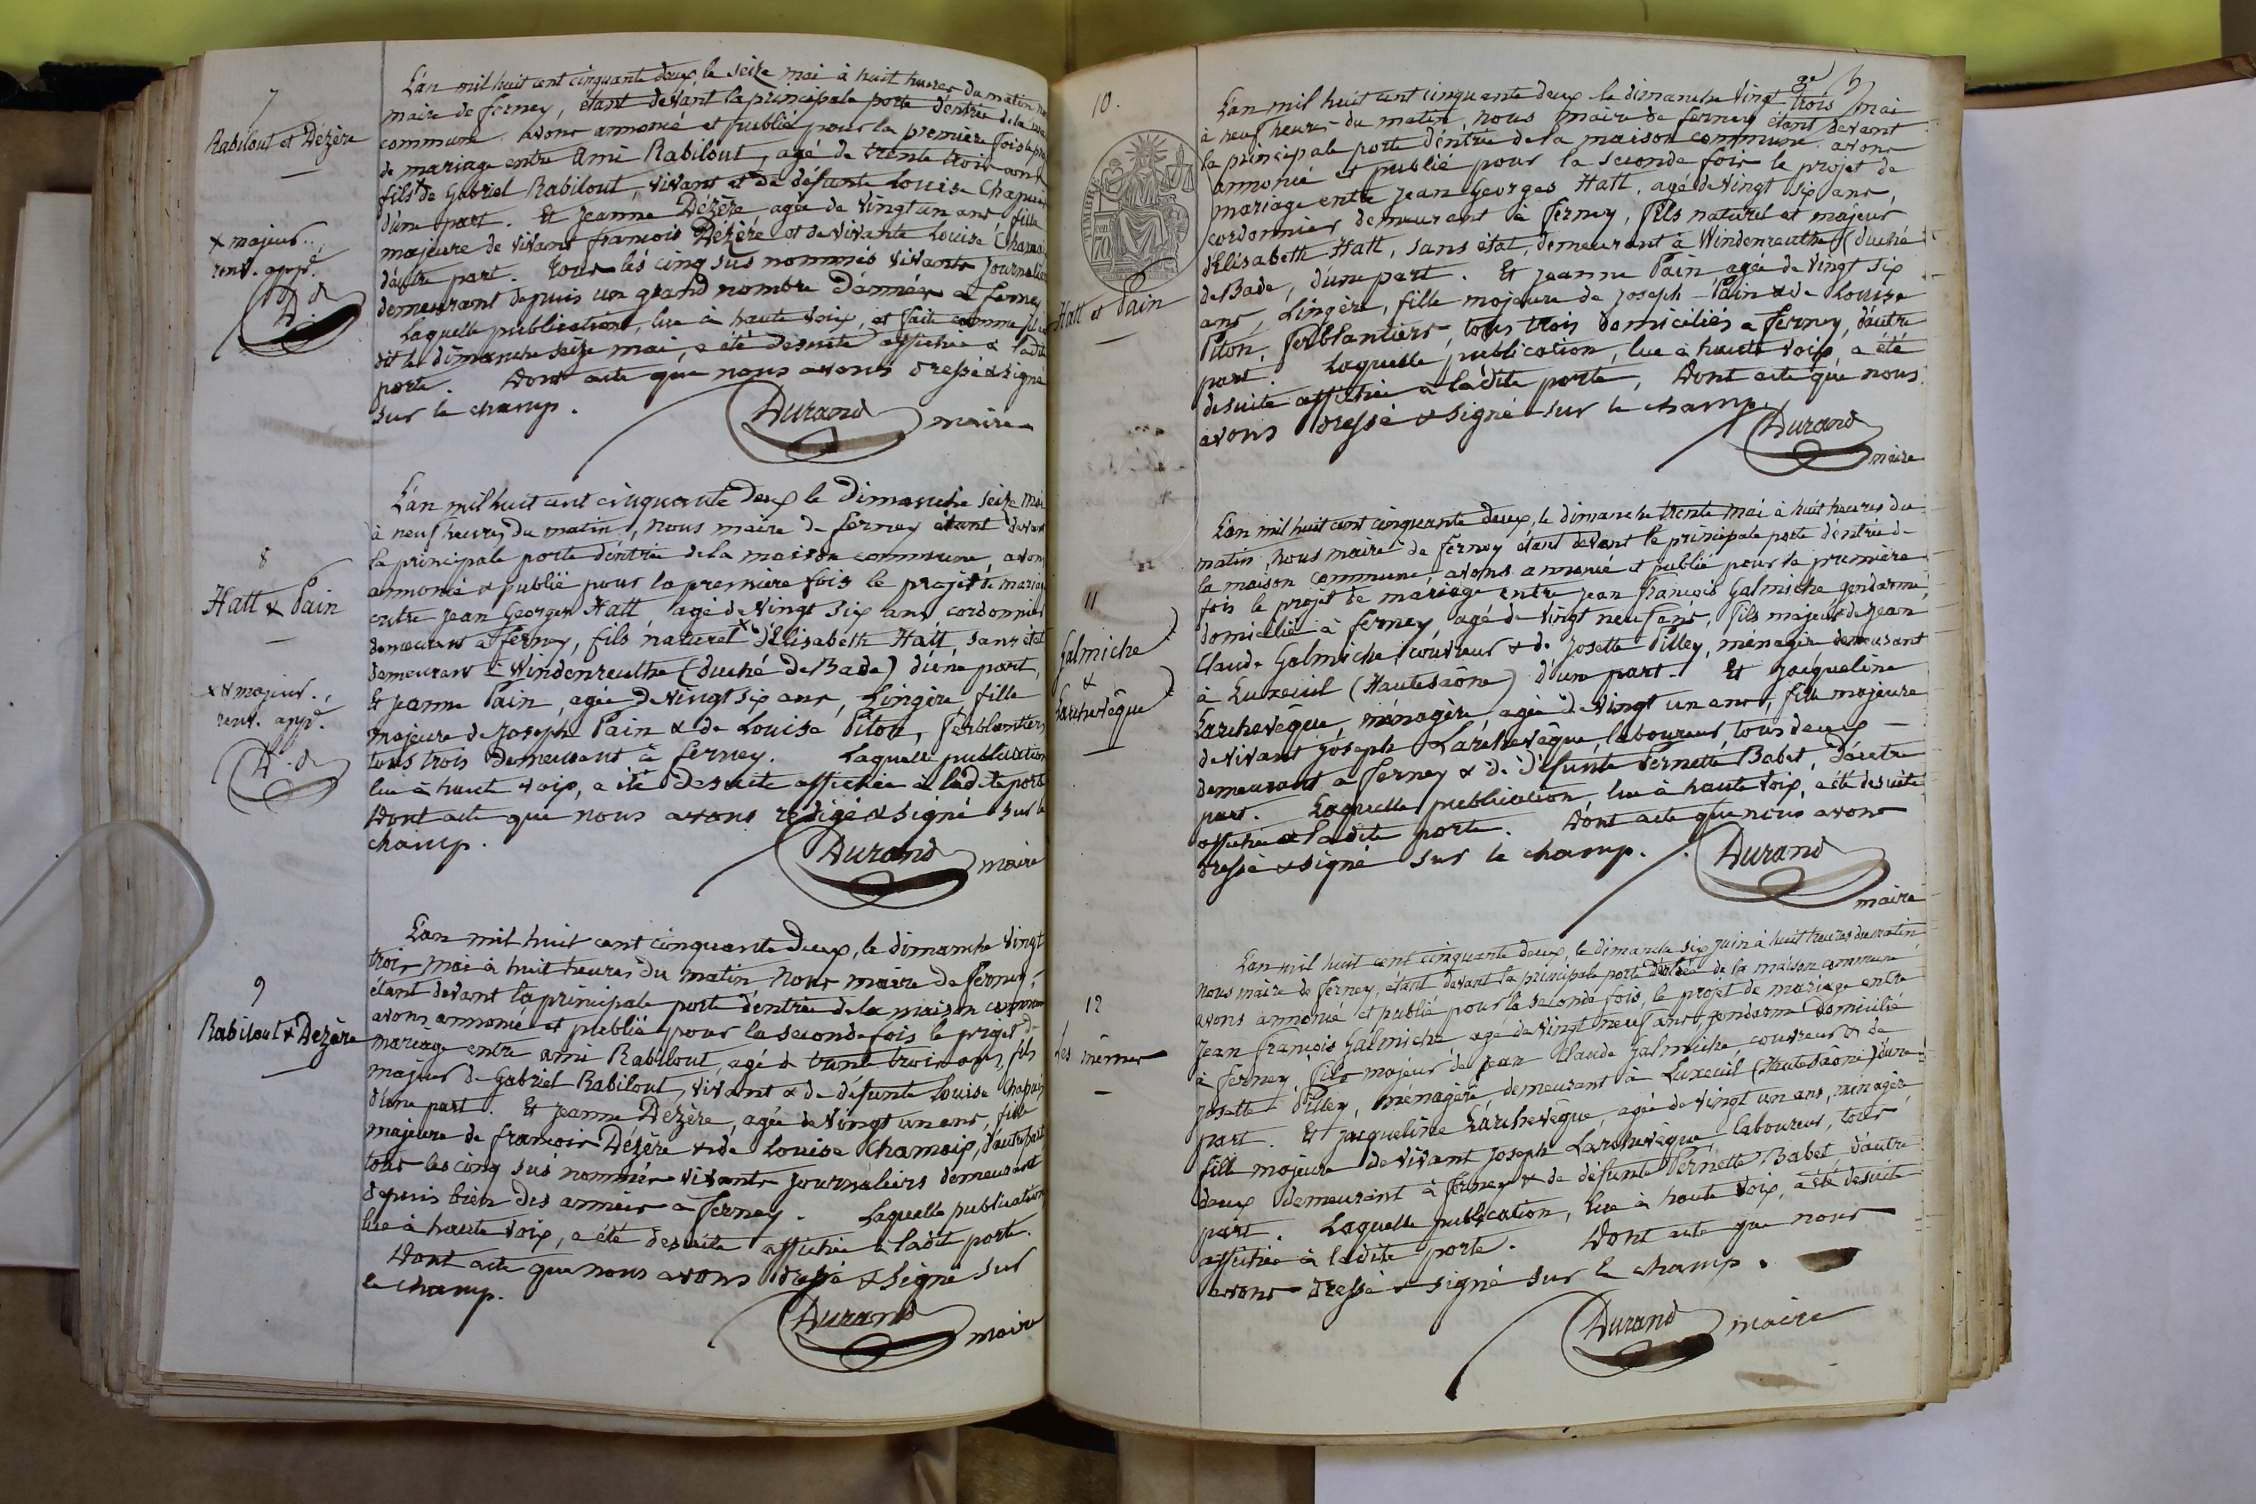 7
Rabilout et Dézère
L'an mil huit cent cinquante deux, le seize mai à huit heures du matin
maire de ferney, étant devant la principale porte d'entrée de la
commune avons annoncé et publié pour la première fois le
de mariage entre Ami Rabilout, agé de trente trois ans
fils + de Gabriel Rabilout, vivant et de défunte Louise Chapuis
d'une part. Et Jeanne Dézère agée de vingt un ans fille
majeure de vivant francois Dézère et de vivante Louise
d'autre part. tous les cinq sus nommés vivants journaliers
demeurant depuis un grand nombre d'années a ferney
Laquelle publication, lue à haute voix, et faite comme
dit le dimanche seize mai, a été desuite affichée a ladite
porte. Dont acte que nous avons dressé & signé
sur le champ.
Durand maire
+ majeur.
renv. app.
D. d
8
Hatt & Pain
L'an mil huit cent cinquante deux le dimanche seize mai
à neuf heures du matin, nous maire de ferney étant devant
la principale porte d'entrée de la maison commune, avons
annoncé & publié pour la première fois le projet de mariage
entre Jean Georges Hatt agé de vingt six ans cordonnier
demeurant a ferney, fils naturel x d'Elisabeth Hatt, sans état
demeurant à Windenreuthe (duché de Bade) d'une part,
Et Jeanne Pain, agée de vingt six ans, Lingère, fille
majeure de Joseph Pain & de Louise Piton, ferblantiers
tous trois demeurant à ferney. Laquelle publication
lue à haute voix, a été desuite affichée a ladite porte
Dont acte que nous avons rédigé & signé sur le
champ.
Durand maire
x & majeur.
renv. app.
D. d
9
Rabilout & Dezère
L'an mil huit cent cinquante deux, le dimanche vingt
trois mai à huit heures du matin, nous maire de ferney,
étant devant la principale porte d'entrée de la maison commune
avons annoncé et publié pour la seconde fois le projet de
mariage entre ami Rabilout, agé de trente trois ans, fils
majeur de Gabriel Rabilout, vivant & de défunte Louise Chapuis
d'une part. Et Jeanne Dezère, agée de vingt un ans, fille
majeure de francois Dézère & de Louise Chamoix, d'autre part
tous les cinq sus nommés vivants journaliers demeurant
depuis bien des années a ferney. Laquelle publication
lue à haute voix, a été desuite affichée a ladite porte.
Dont acte que nous avons dressé & signé sur
le champ.
Durand maire
10.
TIMBRE
70
Hatt et Pain
L'an mil huit cent cinquante deux le dimanche vingt trois mai
à neuf heures du matin, nous maire de ferney étant devant
la principale porte d'entrée de la maison commune avons
annoncé et publié pour la seconde fois le projet de
mariage entre Jean Georges Hatt, agé de vingt six ans,
cordonnier demeurant à ferney, fils naturel et majeur
d'Elisabeth Hatt, sans état, demeurant à Windenreuthe (duché
de Bade, d'une part. Et Jeanne Pain agée de vingt six
ans Lingère, fille majeure de Joseph Pain & de Louise
Piton, ferblantiers, tous trois domiciliés a ferney, d'autre
part. Laquelle publication, lue à haute voix, a été
desuite affichée a ladite porte, Dont acte que nous
avons dressé & signé sur le champ.
Durand
maire
11
Galmiche
&
Larchevêque
L'an mil huit cent cinquante deux, le dimanche trente mai à huit heures du
matin, nous maire de ferney étant devant la principale porte d'entrée de
la maison commune, avons annoncé et publié pour la première
fois le projet de mariage entre Jean francois Galmiche gendarme,
domicilié à ferney, agé de vingt neuf ans, fils majeur de Jean
Claude Galmiche, couvreur & de Josette Pilley, ménagère demeurant
à Luxeuil (Haute saône) d'une part. Et Jacqueline
Larchevêque, ménagère, agée de vingt un ans, fille majeure
de vivant Joseph Larchevêque, laboureur, tous deux
demeurant a ferney & de défunte Pernette Babet, d'autre
part. Laquelle publication lue à haute voix, a été desuite
affichée à ladite porte. Dont acte que nous avons
dressé & signé sur le champ.
Durand
maire
12
Les mêmes
L'an mil huit cent cinquante deux, le dimanche six juin à huit heures du matin
nous maire de ferney, étant devant la principale porte d'entrée de la maison commune
avons annoncé et publié pour la seconde fois, le projet de mariage entre
Jean francois Galmiche agé de vingt neuf ans, gendarme domicilié
à ferney, fils majeur de Jean Claude Galmiche couvreur & de
Josette Pilley, ménagère demeurant à Luxeuil (Haute saône) d'une
part. Et Jacqueline Larchevêque, agée de vingt un ans, ménagère
fille majeure de vivant Joseph Larchevêque, laboureur, tous
deux demeurant à ferney & de défunte Pernette Babet, d'autre
part. Laquelle publication, lue à haute voix, a été desuite
affichée à ladite porte. Dont acte que nous
avons dressé & signé sur le champ.
Durand maire